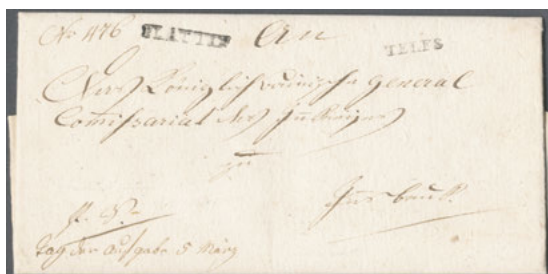 No 476 An
TELFS
Das Königlich baierische General
Commissariat des Innkreises
zu
Innsbruck.
Tag der Aufgabe 5 März